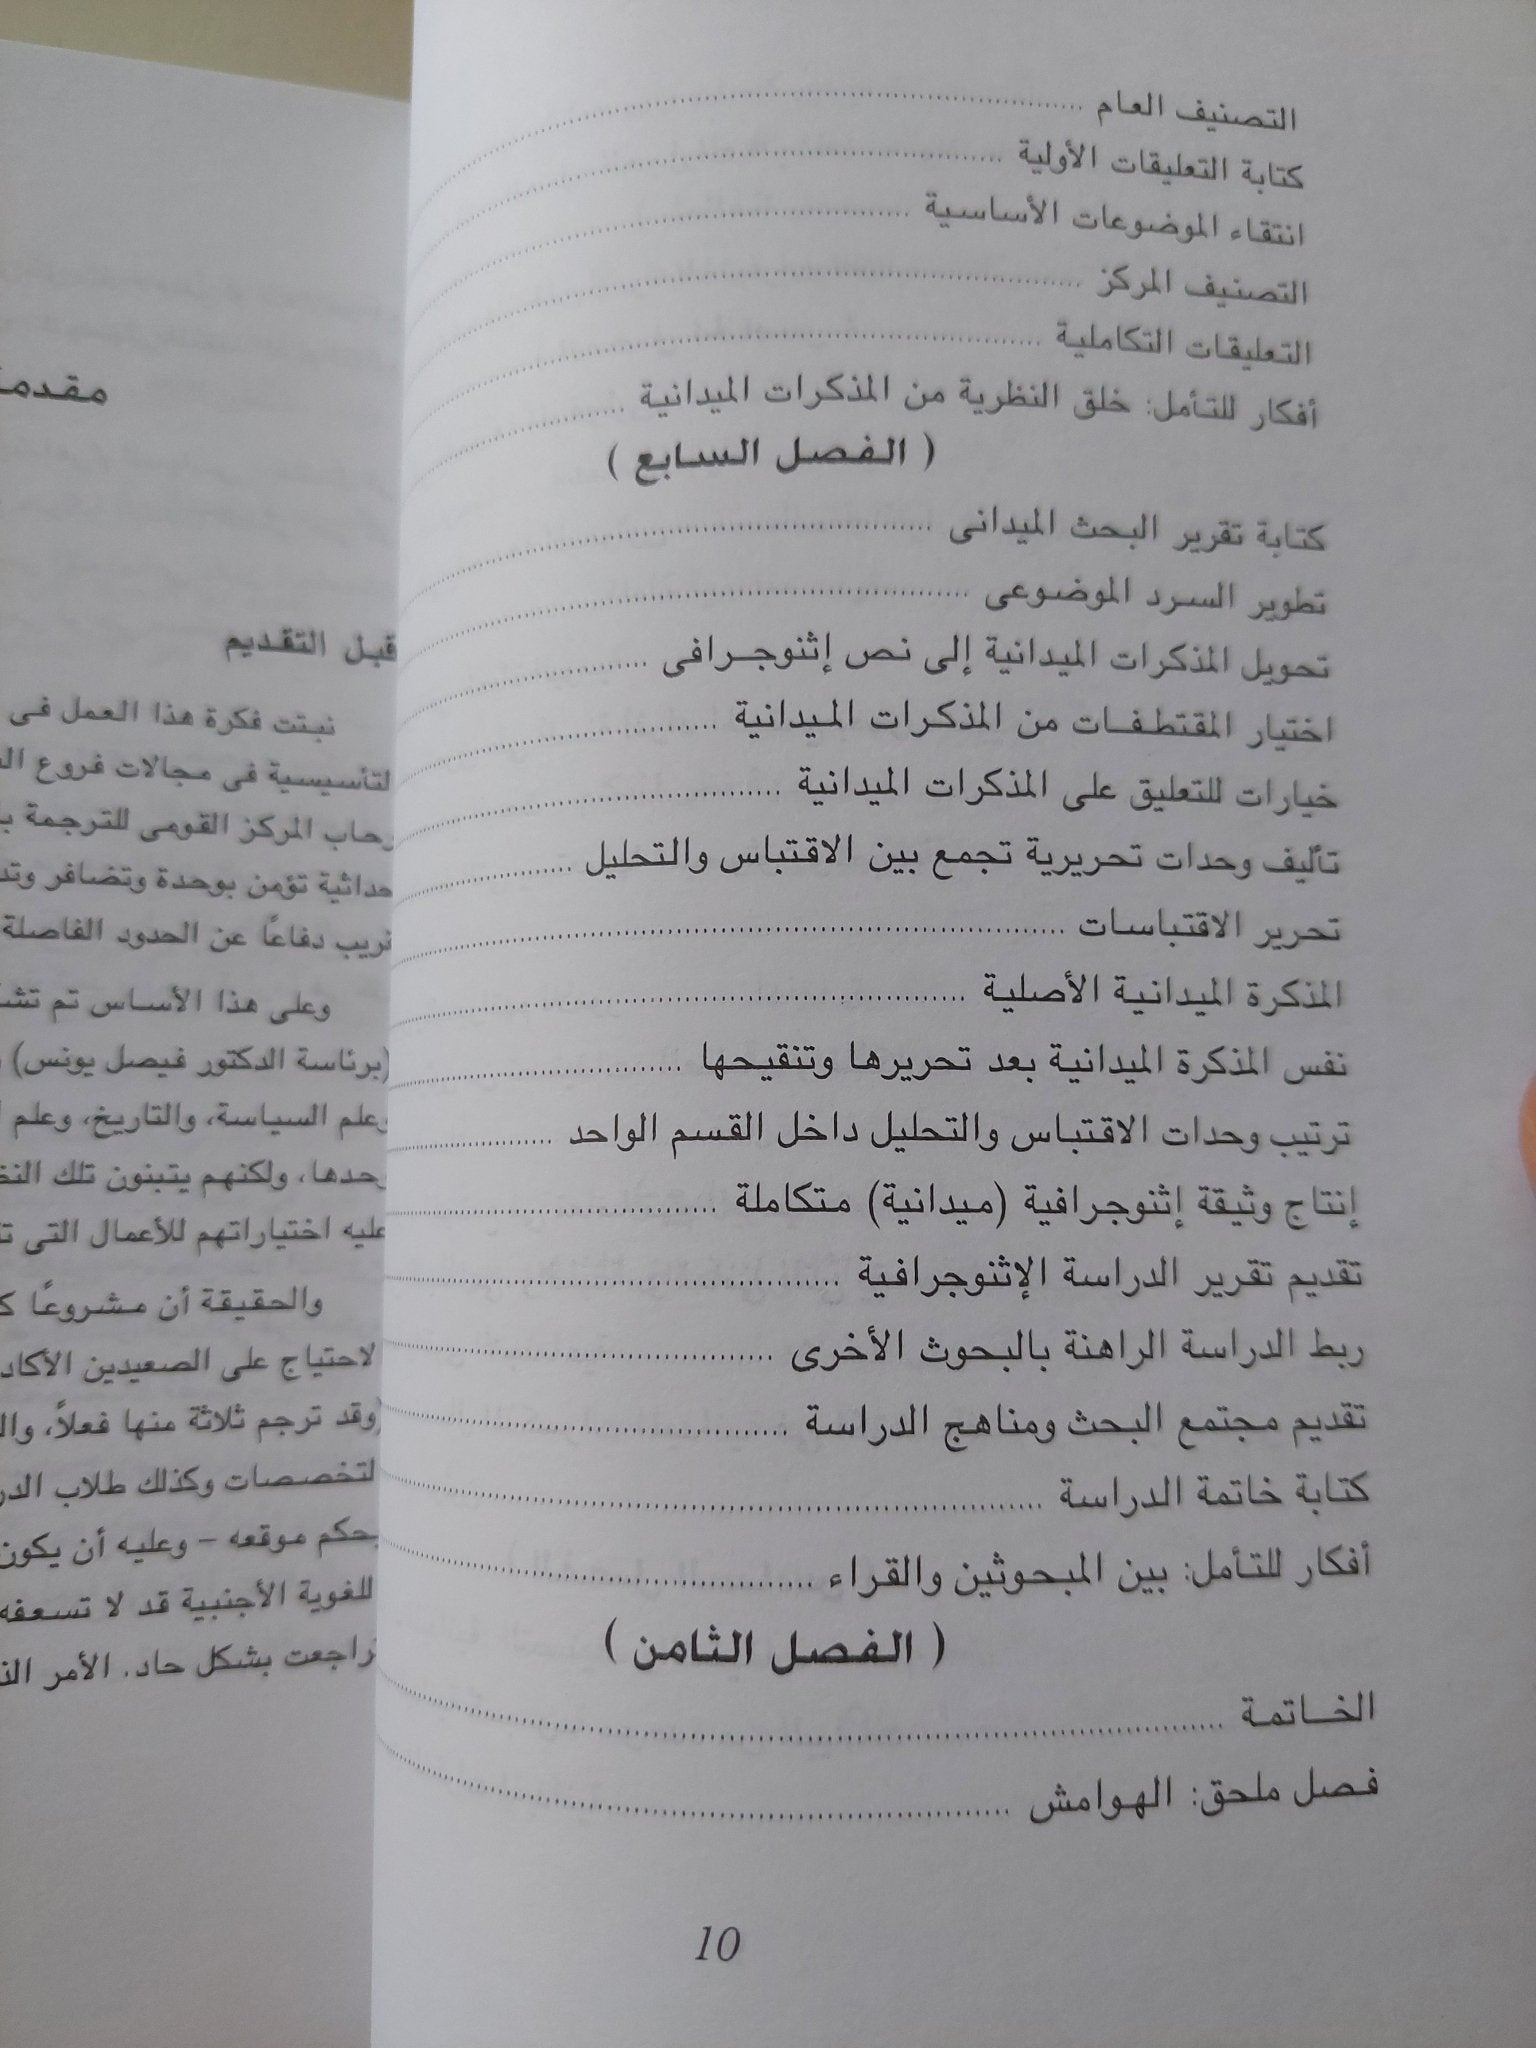 التصنيف العام
كتابة التعليقات الأولية
انتقاء الموضوعات الأساسية
التصنيف المركز
التعليقات التكاملية
أفكار للتأمل: خلق النظرية من المذكرات الميدانية
( الفصل السابع )
كتابة تقرير البحث الميدانى
تطوير السرد الموضوعى
تحويل المذكرات الميدانية إلى نص إثنوجرافى
اختيار المقتطفات من المذكرات الميدانية
خيارات للتعليق على المذكرات الميدانية
تأليف وحدات تحريرية تجمع بين الاقتباس والتحليل
تحرير الاقتباسات
المذكرة الميدانية الأصلية
نفس المذكرة الميدانية بعد تحريرها وتنقيحها
ترتيب وحدات الاقتباس والتحليل داخل القسم الواحد
إنتاج وثيقة إثنوجرافية (ميدانية) متكاملة
تقديم تقرير الدراسة الإثنوجرافية
ربط الدراسة الراهنة بالبحوث الأخرى
تقديم مجتمع البحث ومناهج الدراسة
كتابة خاتمة الدراسة
أفكار للتأمل: بين المبحوثين والقراء
( الفصل الثامن )
الخاتمة
فصل ملحق: الهوامش
10
قبل التقديم
نبتت فكرة هذا العمل فى
فى مجالات فروع
المركز القومى للترجمة
تؤمن بوحدة وتضافر
دفاعًا عن الحدود الفاصلة
وعلى هذا الأساس تم
(برئاسة الدكتور فيصل يونس)
وعلم السياسة، والتاريخ، وعلم
ولكنهم يتبنون تلك
عليه اختياراتهم للأعمال التى
والحقيقة أن مشروعًا
على الصعيدين
وقد ترجم ثلاثة منها فعلاً،
وكذلك طلاب
بحكم موقعه – وعليه أن يكون
الأجنبية قد لا تسعفه
بشكل حاد. الأمر